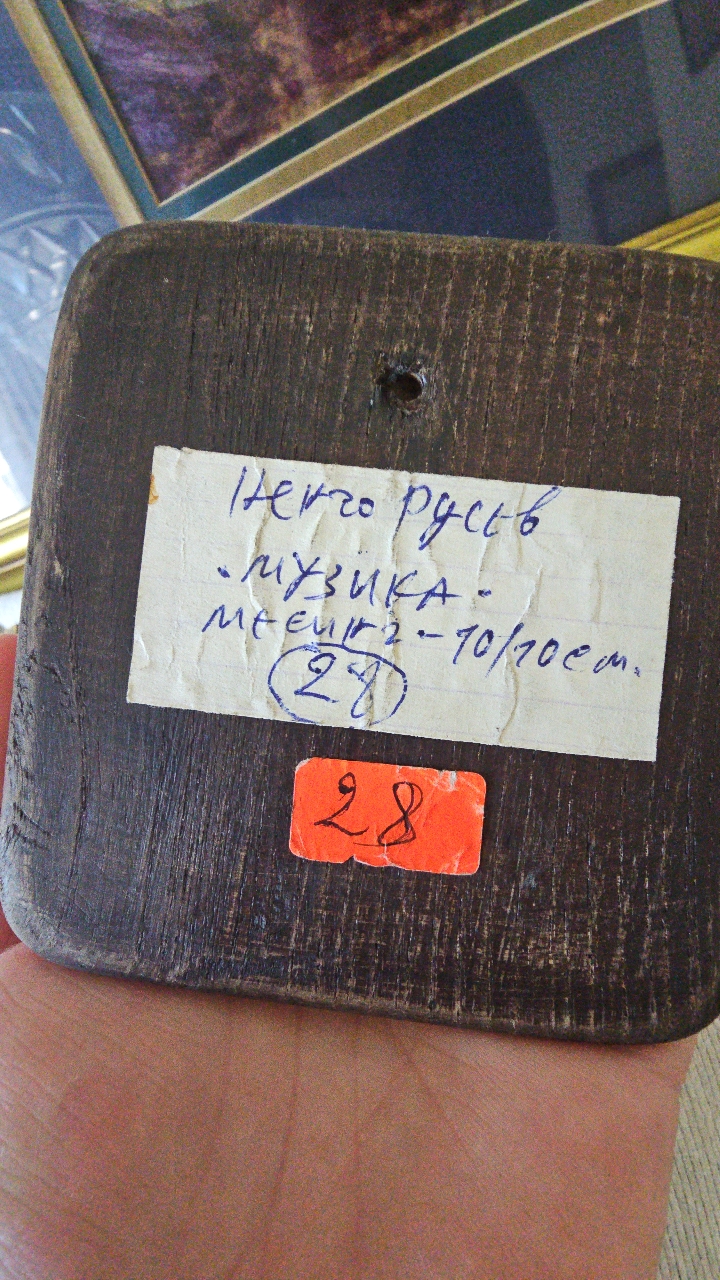 Ненчо Русев
"МУЗИКА"
месинг - 10/10 см.
28
28